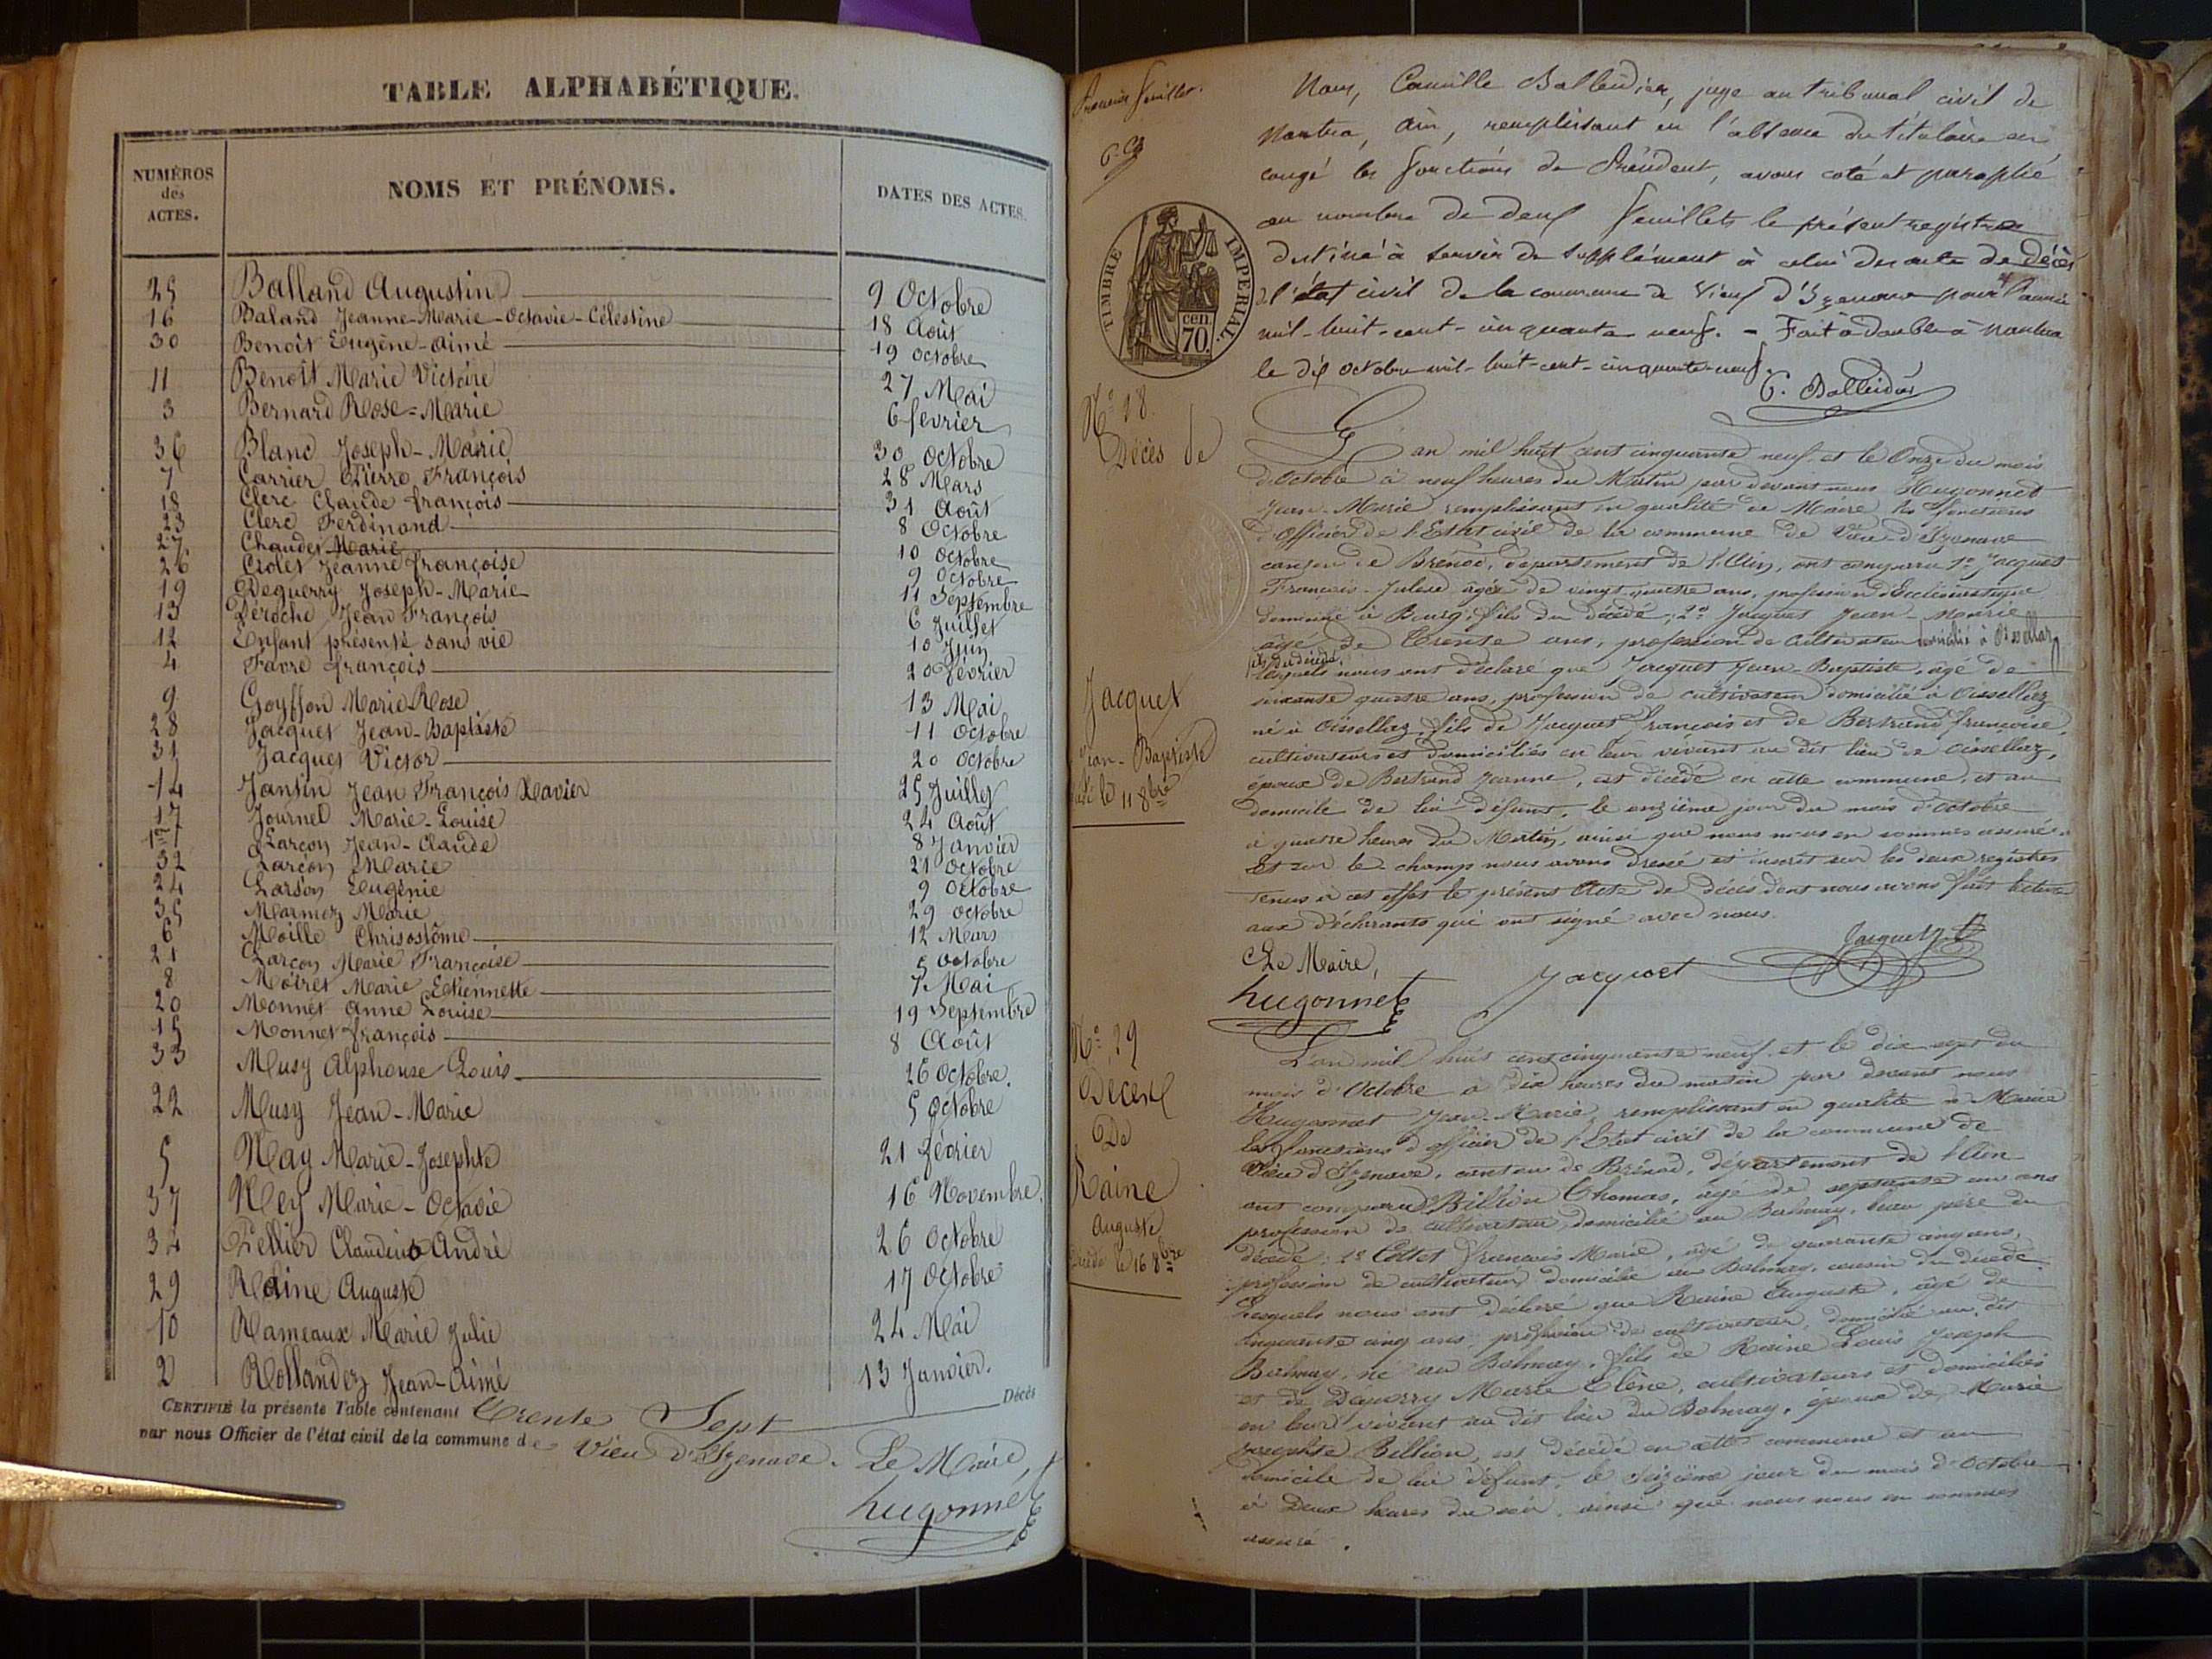 TABLE ALPHABÉTIQUE.
NUMÉROS
des
ACTES.
NOMS ET PRÉNOMS.
DATES DES ACTES.
25 Balland Augustin 9 Octobre
16 Baland Jeanne-Marie-Octavie-Célestine 18 Août
30 Benoît Eugène-Aimé 19 Octobre
11 Benoît Marie Victoire 27 Mai
3 Bernard Rose-Marie 6 fevrier
36 Blanc Joseph-Marie 30 Octobre
7 Carrier Pierre François 28 Mars
18 Clerc Claude françois 31 Août
23 Clerc Ferdinand 8 Octobre
27 Chaudet Marie 10 Octobre
26 Jeanne françoise 9 Octobre
19 Deguerry Joseph-Marie 11 Septembre
13 Déroche Jean François 6 Juillet
12 Enfant présenté sans vie 10 Juin
4 Favre françois 20 Février
9 Goyffon Marie-Rose 13 Mai
28 Jacquet Jean-Baptiste 11 Octobre
31 Jacquet Victor 20 Octobre
14 Jantin Jean François Xavier 25 Juillet
17 Journel Marie-Louise 24 Août
1er Larçon Jean-Claude 8 Janvier
32 Larçon Marie 21 Octobre
24 Larson Eugénie 9 Octobre
35 Marmez Marie 29 Octobre
6 Moille Chrisostôme 12 Mars
21 Larçon Marie Françoise 5 Octobre
8 Moiret Marie Etiennette 7 Mai
20 Monnet Anne Louise 19 Septembre
15 Monnet françois 8 Août
33 Musy Alphonse Louis 26 Octobre.
22 Musy Jean-Marie 5 Octobre
5 Nay Marie-Josephte 21 février
37 Ney Marie-Octavie 16 Novembre.
34 Pellier André 26 Octobre
29 Raine Auguste 17 Octobre
10 Rameaux Marie Julie 24 Mai
2 Rollandez Jean-Aimé 13 Janvier.
CERTIFIÉ la présente Table contenant Trente Sept Décès
par nous Officier de l'état civil de la commune de Vieu d'Izenave. Le Maire,
hugonnet
Premier feuillet.
C. B
Nous, Camille Balleidier, juge au tribunal civil de
Nantua, Ain, remplissant en l'absence du titulaire en
congé les fonctions de Président, avons coté et paraphé
au nombre de deux feuillets le présent registre
destiné à servir de supplément à celui des actes de décès
de l'état civil de la commune de Vieux d'Izenave pour l'année
mil-huit-cent-cinquante neuf. - Fait à double à Nantua
le dix octobre mil-huit-cent-cinquante-neuf.
C. Balleidier
TIMBRE IMPERIAL.
cen
70.
No 28.
Décès de
Jacquet
Jean-Baptiste
le 11 8bre
L'an mil huit cent cinquante neuf et le Onze du mois
d'Octobre à neuf heures du Matin par devant nous Hugonnet
Jean-Marie remplissant en qualité de Maire les fonctions
d'Officier de l'Etat civil de la commune de Vieu-d'Izenave
canton de Brénod, département de l'Ain, ont comparu 1o Jacquet
François-Julien âgé de vingt-quatre ans, profession d'Ecclésiastique
domicilié à Bourg, fils du décédé, 2o Jacquet Jean-Marie
âgé de Trente ans, profession de cultivateur domicilié à
fils du décédé,
lesquels nous ont déclaré que Jacquet Jean-Baptiste, âgé de
soixante quatre ans, profession de cultivateur domicilié à Oisselliaz
né à Oisselliaz, fils de Jacquet François et de Bertrand françoise,
cultivateurs et domiciliés en leur vivant au dit lieu de Oisselliaz,
époux de Bertrand Jeanne, est décédé en cette commune, et au
domicile de lui défunt, le onzième jour du mois d'octobre
à quatre heures du Matin, ainsi que nous nous en sommes assuré.
Et sur le champ nous avons dressé et inscrit sur les deux registres
tenus à cet effet le présent Acte de décès dont nous avons fait lecture
aux déclarants qui ont signé avec nous.
Le Maire,
hugonnet Jacquet Jacquet
No 29
Décès
De
Raine
Auguste
Décédé le 16 8bre
L'an mil huit cent cinquante neuf et le dix sept du
mois d'Octobre à dix heures du matin par devant nous
Hugonnet Jean-Marie remplissant en qualité de Maire
les fonctions d'officier de l'Etat civil de la commune de
Vieu d'Izenave, canton de Brénod, département de l'Ain
ont comparu Billion Thomas, âgé de septante un ans
profession de cultivateur, domicilié au Balmay, beau père du
décédé; 2o François Marie, âgé de quarante cinq ans,
profession de cultivateur domicilié au Balmay, cousin du décédé
Lesquels nous ont déclaré que Raine Auguste, âgé de
cinquante cinq ans profession de cultivateur, domicilié au dit
Balmay, né au Balmay, fils de Raine Louis Joseph
et de Deguerry Marie Elène, cultivateurs et domiciliés
en leur vivant au dit lieu du Balmay, époux de Marie
Josephte Billion, est décédé en cette commune et au
domicile de lui défunt, le seizième jour du mois d'Octobre
à Deux heures du soir, ainsi que nous nous en sommes
assuré.